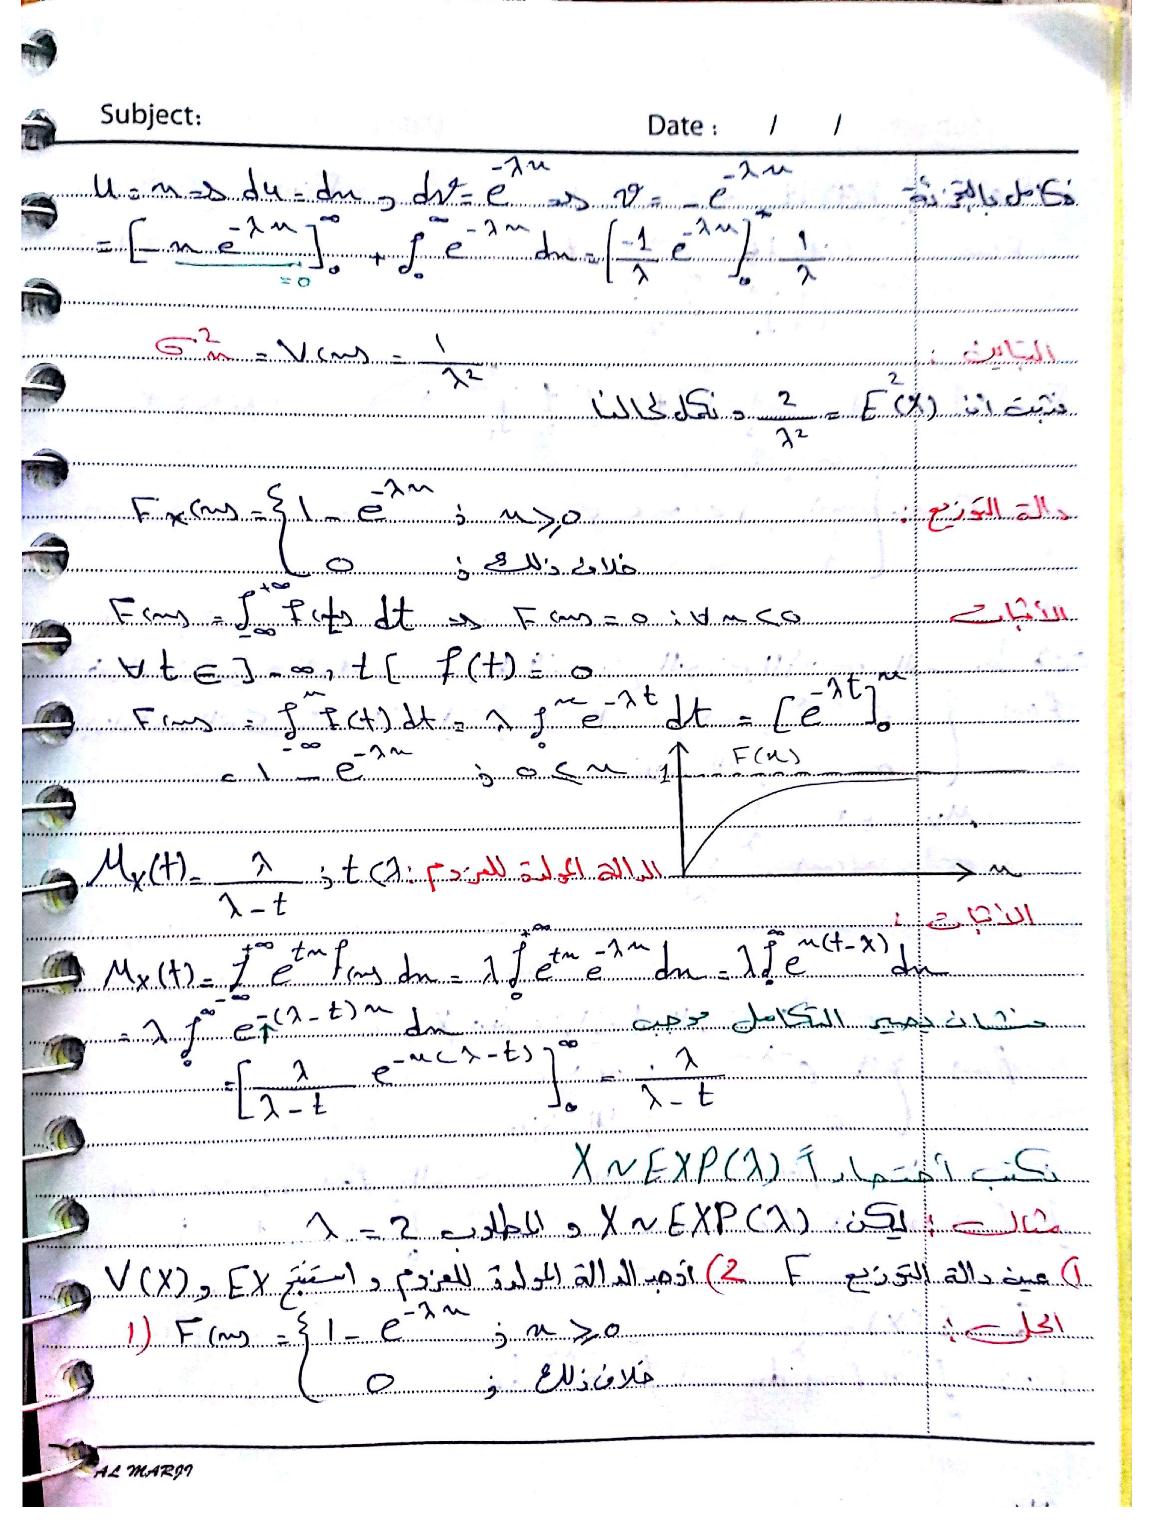 Subject:
Date : / /
نكامل بالتجزئة u = x ⇒ du = dx , dv = e^{-λx} ⇒ v = -e^{-λx}
= [-x e^{-λx}]_0^∞ + ∫_0^∞ e^{-λx} dx = [-1/λ e^{-λx}]_0^{+∞} 1/λ
= 0
التباين : σ²_x = V(x) = 1/λ²
نثبت ان E²(X) = 2/λ² ونكمل لحالنا
دالة التوزيع : F_X(x) = { 1 - e^{-λx} ; x ≥ 0
0 ; خلاف ذلك
الاثبات F(x) = ∫_{-∞}^{+∞} f(t) dt ⇒ F(x) = 0 ; ∀ x < 0
: ∀ t ∈ ]-∞, t[ f(t) = 0
F(x) = ∫_{-∞}^x f(t) dt = λ ∫_0^x e^{-λt} dt = [e^{-λt}]_0^x
= 1 - e^{-λx} ; 0 < x
1 F(x)
x
الدالة المولدة للعزوم : M_X(t) = λ/(λ-t) ; t < λ
الاثبات :
M_X(t) = ∫_{-∞}^{+∞} e^{tx} f(x) dx = λ ∫_0^{+∞} e^{tx} e^{-λx} dx = λ ∫_0^∞ e^{x(t-λ)} dx
= λ ∫_0^∞ e^{-(λ-t)x} dx منشان يصير التكامل موجب
= [λ/(λ-t) e^{-x(λ-t)}]_0^∞ = λ/(λ-t)
نكتب اختصاراً X ~ EXP(λ)
مثال : ليكن X ~ EXP(λ) و المطلوب λ = 2
1) عين دالة التوزيع F 2) اوجد الدالة المولدة للعزوم و استنتج EX , V(X)
الحل :
1) F(x) = { 1 - e^{-λx} ; x ≥ 0
0 ; خلاف ذلك
AL MARJI